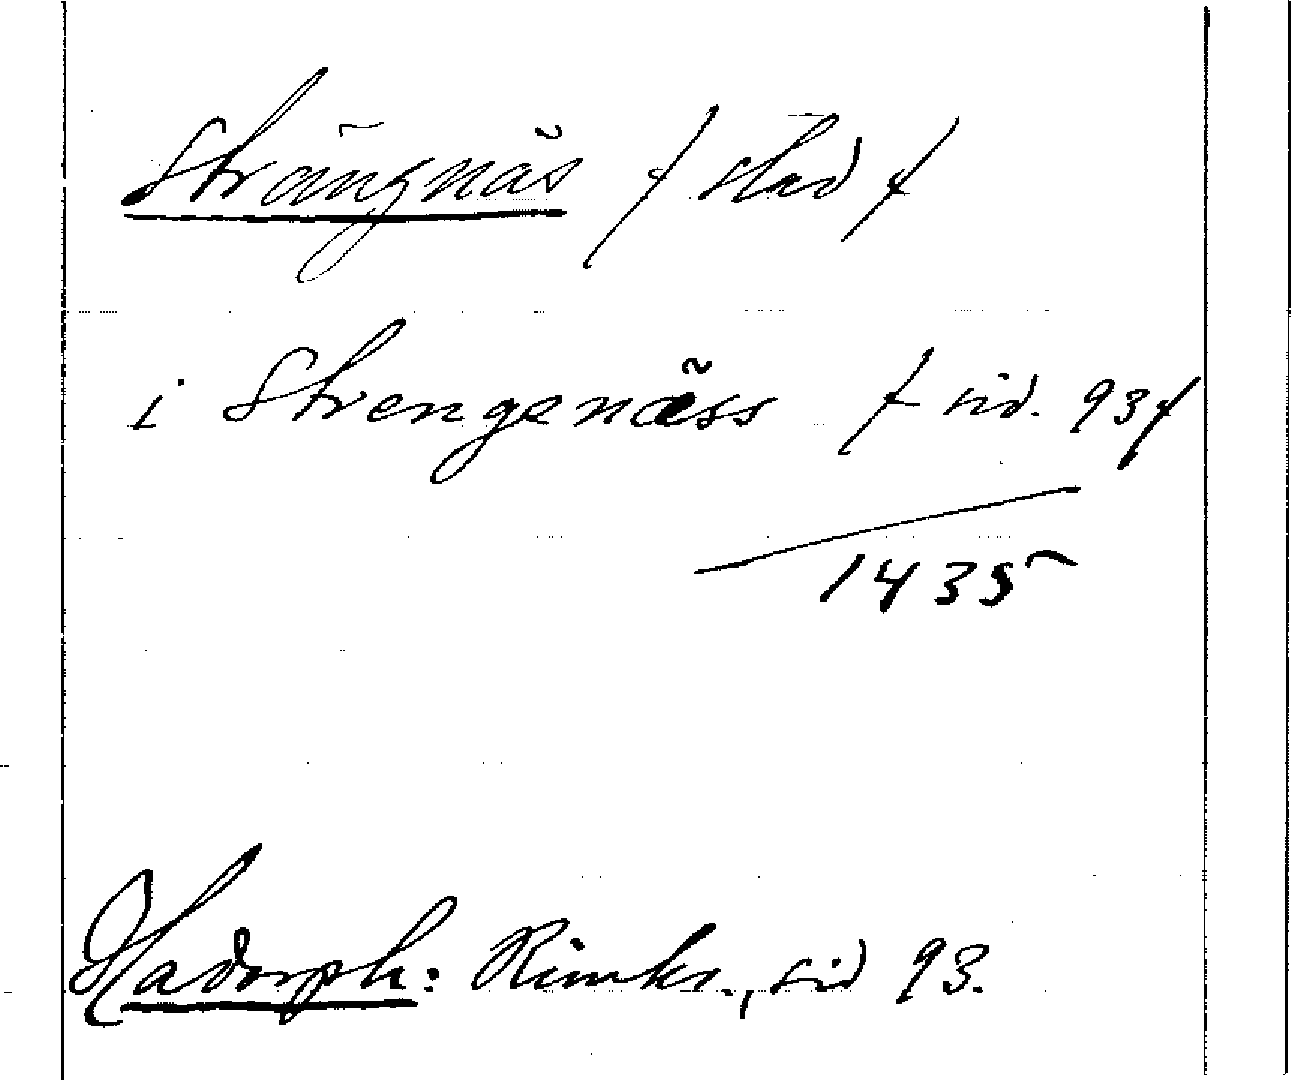 Strängnäs / stad /
i Strengenæss / sid. 93 /
1435
Hadorph: Rimkr., sid 93.